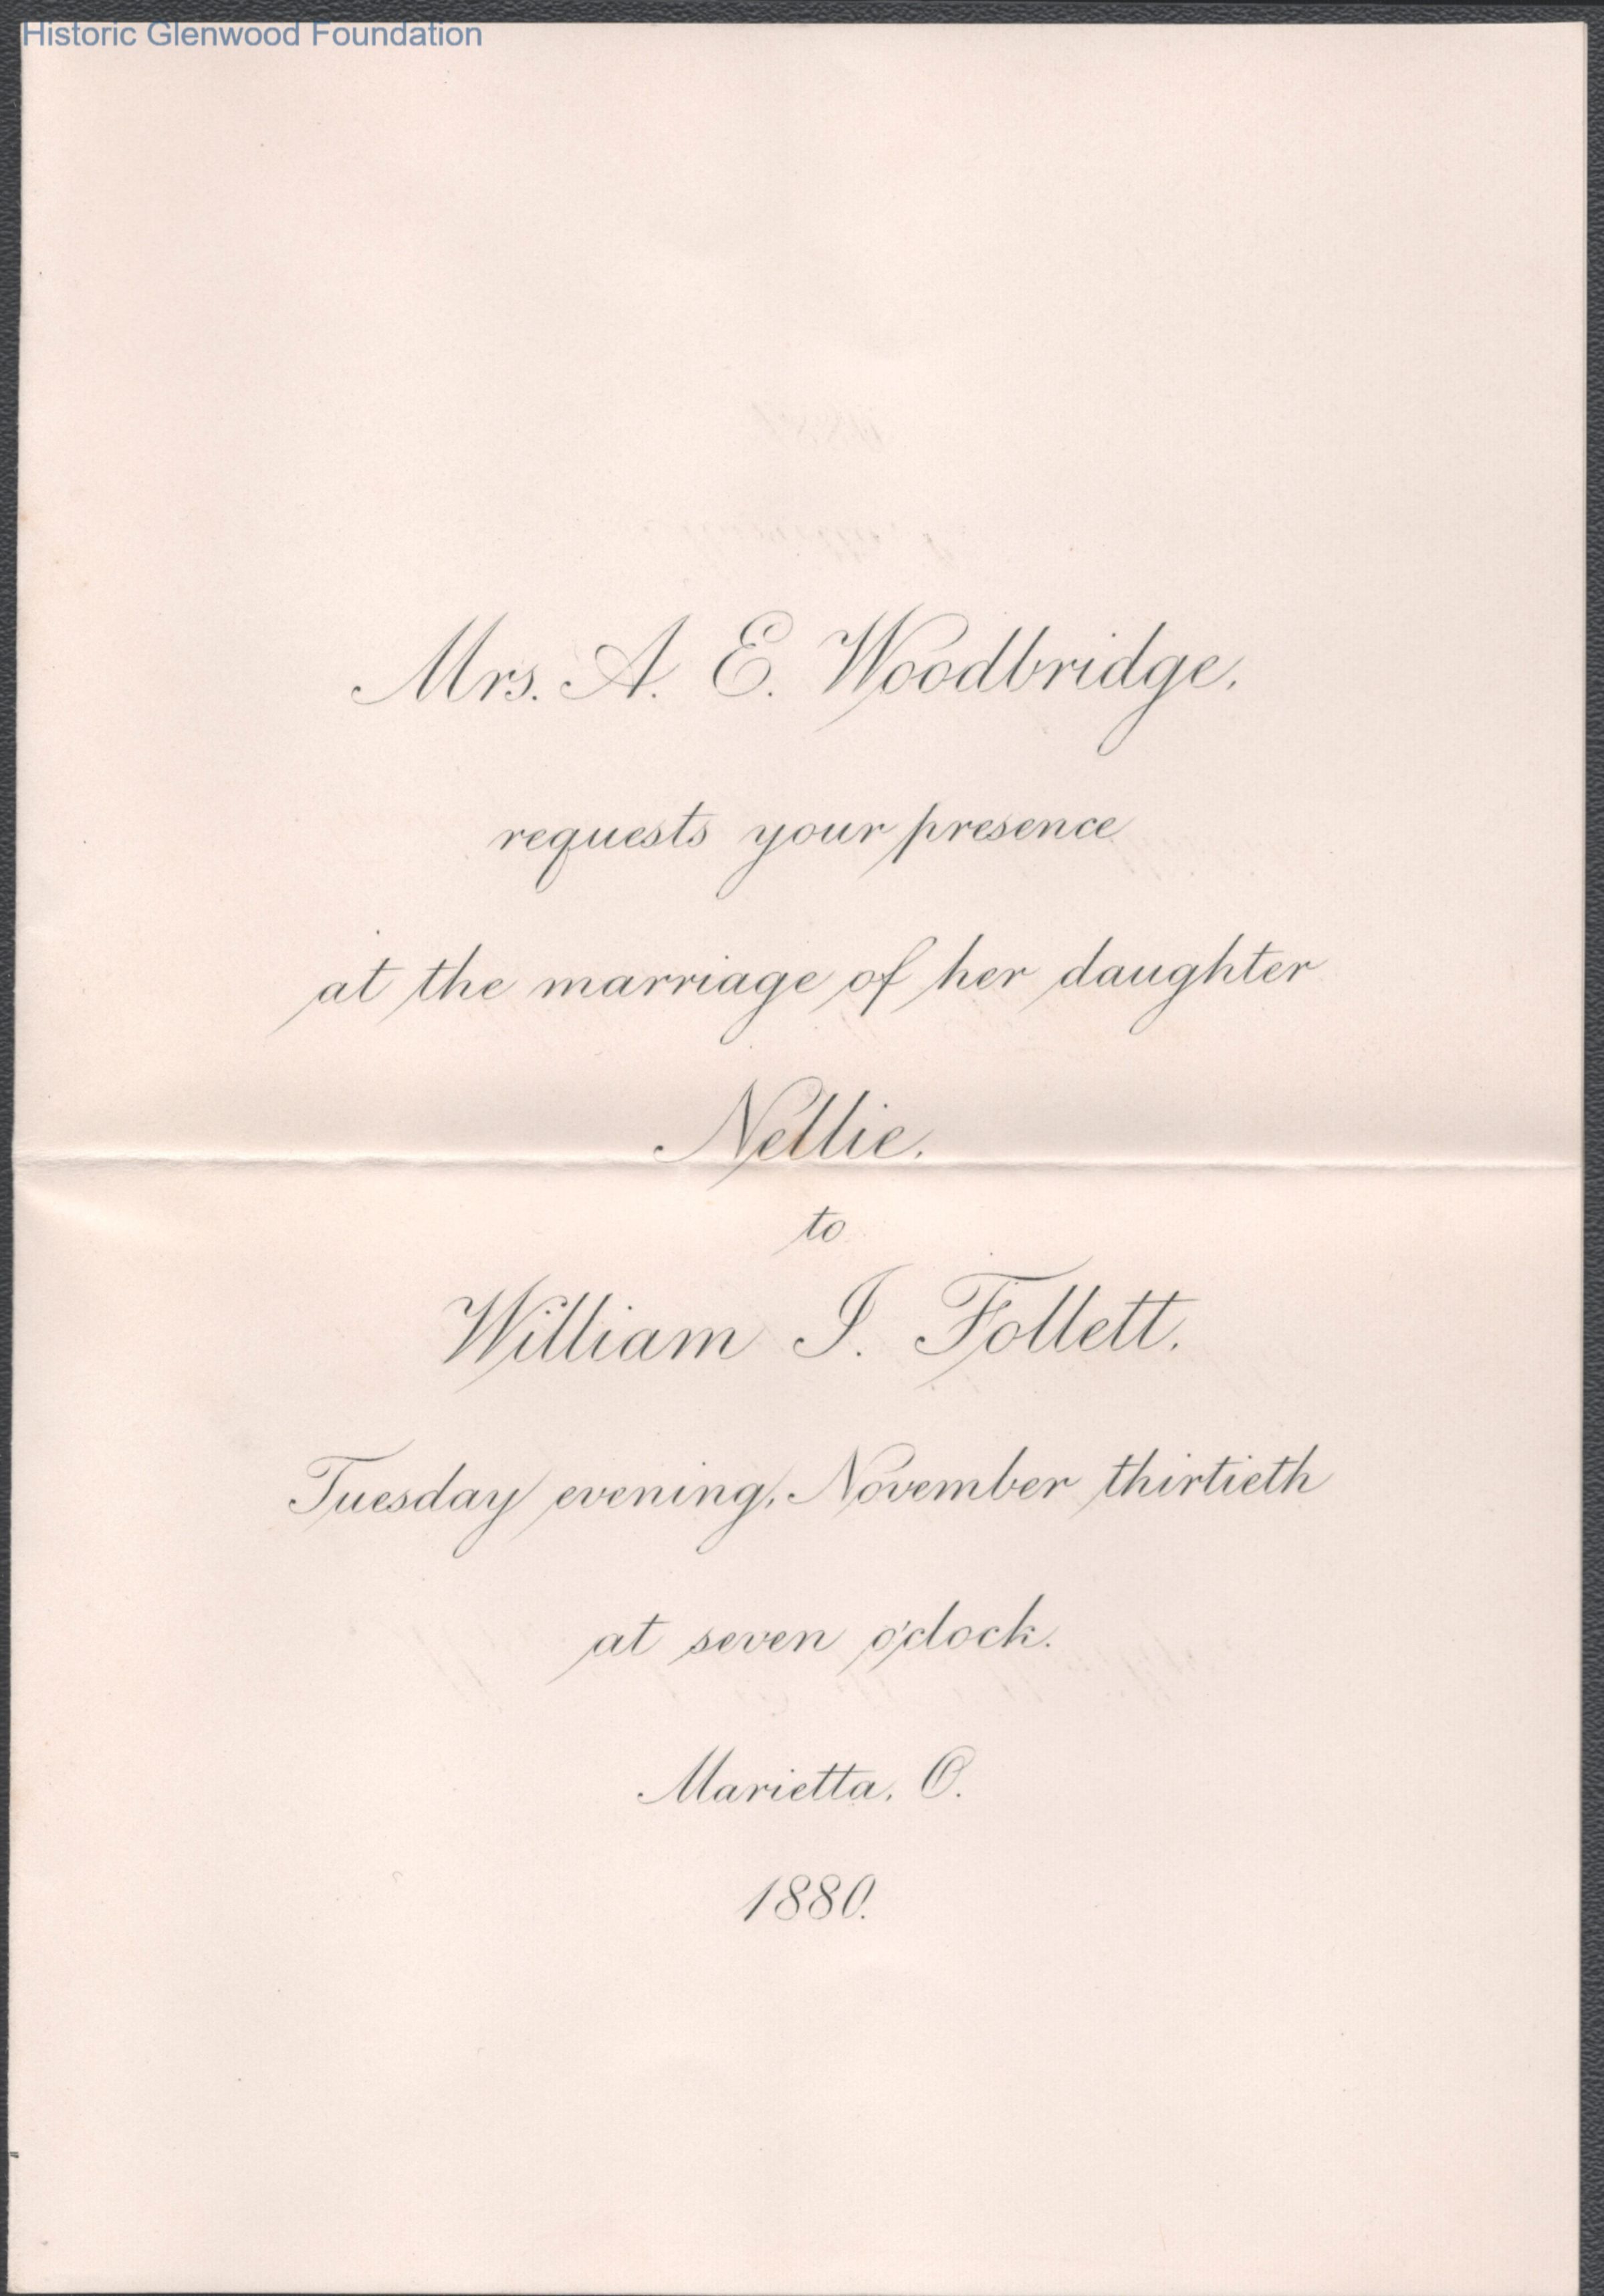 Historic Glenwood Foundation
Mrs. A. E. Woodbridge,
requests your presence
at the marriage of her daughter
Nellie,
to
William I. Follett,
Tuesday evening, November thirtieth
at seven o'clock.
Marietta, O.
1880.